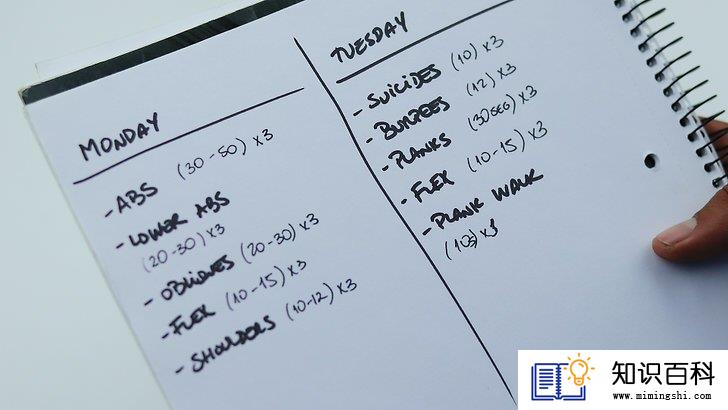 MONDAY
- ABS (30-50) x3
- LOWER ABS
(20-30) x3
- OBLIQUES (20-30) x3
- FLEX (10-15) x3
- SHOULDERS (10-12) x3
TUESDAY
- SUICIDES (10) x3
- BURPEES (12) x3
- PLANKS (30SEG) x3
- FLEX (10-15) x3
- PLANK WALK
知识百科
www.mimingshi.com